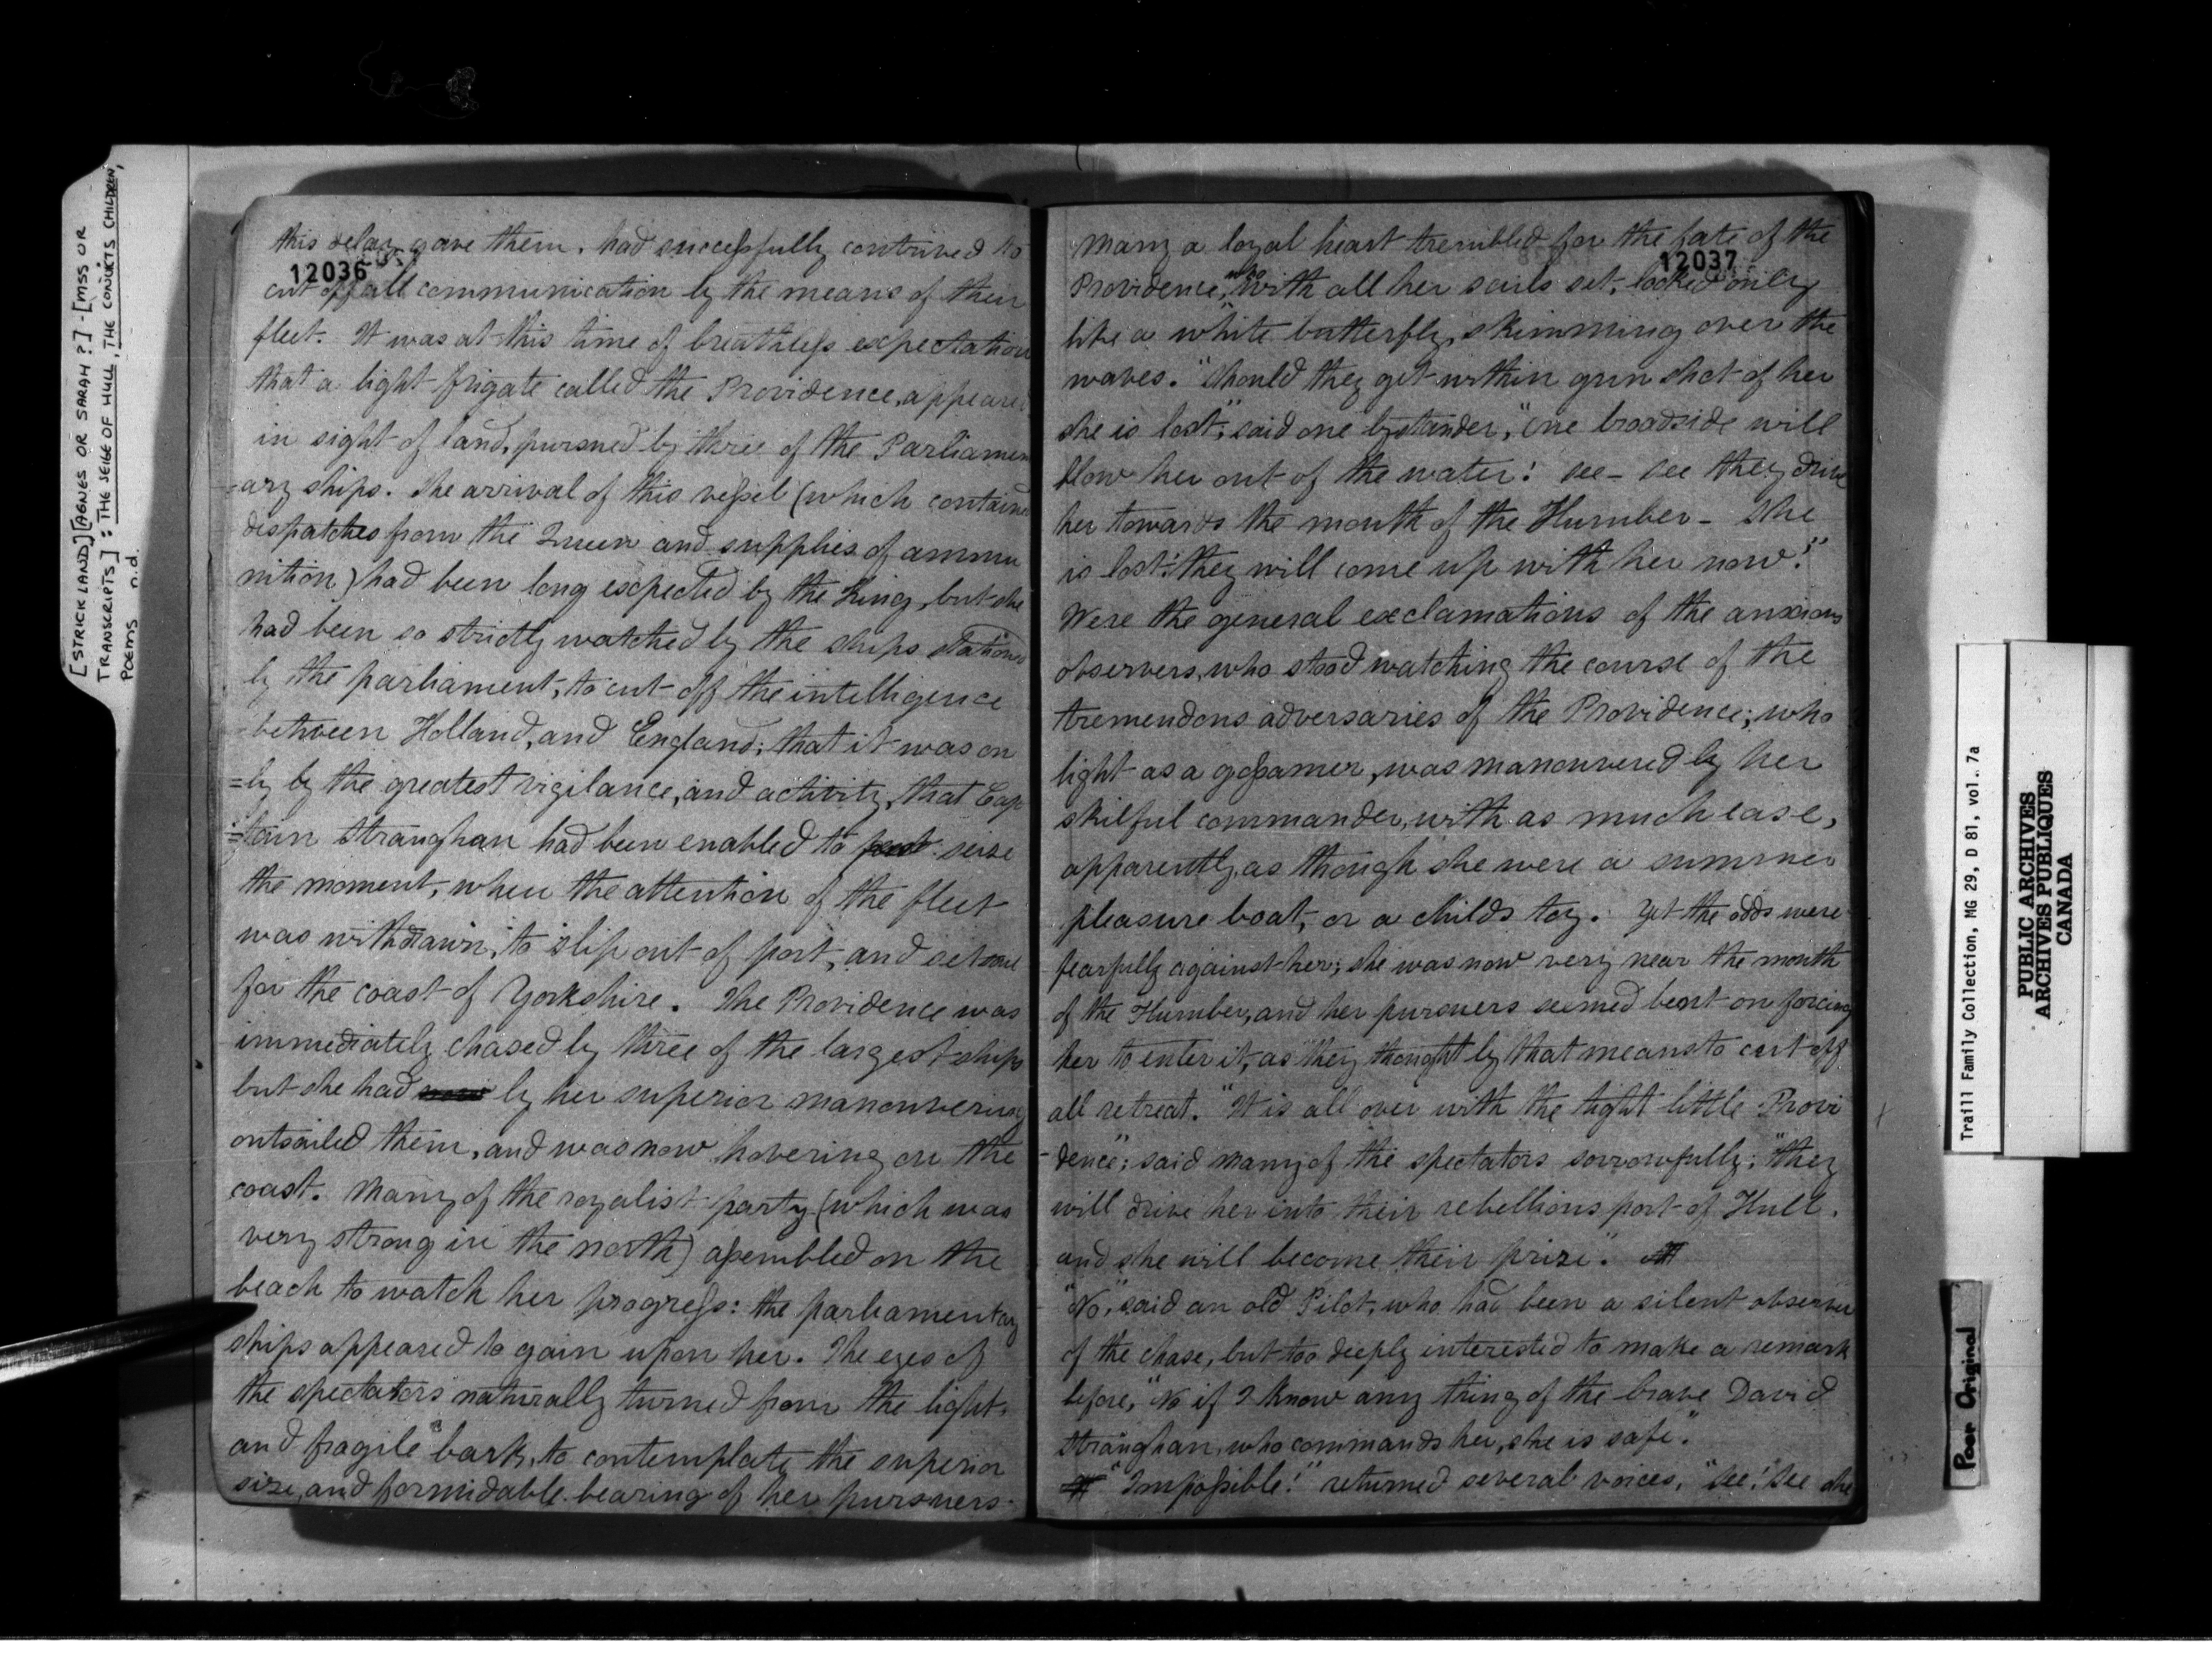 [STRICKLAND] [AGNES OR SARAH ?] - [MSS OR
TRANSCRIPTS] : THE SEIGE OF HULL, THE CONVICTS CHILDREN,
POEMS n.d.
this delay gave them. had successfully contrived to
12036
cut off all communication by the means of their
fleet. It was at this time of breathless expectation
that a light frigate called the Providence, appeared
in sight of land, pursued by three of the Parliamen
=ary ships. The arrival of this vessel (which contained
dispatches from the Queen and supplies of ammu
nition) had been long expected by the King, but she
had been so strictly watched by the ships stationed
by the parliament, to cut off the intelligence
between Holland, and England; that it was on
=ly by the greatest vigilance, and activity, that Cap
=tain Stranghan had been enabled to seize
the moment, when the attention of the fleet
was withdrawn, to slip out of port, and set out
for the coast of Yorkshire. The Providence was
immediately chased by three of the largest ships
but she had by her superior manouvering
outsailed them, and was now hovering on the
coast. Many of the royalist party (which was
very strong in the north) assembled on the
beach to watch her progress: the parliamentary
ships appeared to gain upon her. The eyes of
the spectators naturally turned from the light,
and fragile bark, to contemplate the superior
size, and formidable bearing of her pursuers.
Many a loyal heart trembled for the fate of the
12037
Providence, who with all her sails set, looked only
like a white butterfly, skimming over the
waves. "Should they get within gun shot of her
she is lost", said one bystander, "one broadside will
blow her out of the water! see - see they drive
her towards the mouth of the Humber - She
is lost! they will come up with her now!"
Were the general exclamations of the anxious
observers, who stood watching the course of the
tremendous adversaries of the Providence; who
light as a gossamer, was manouvered by her
skilful commander, with as much ease,
apparently, as though she were a summer
pleasure boat, or a childs toy. Yet the odds were
fearfully against her; she was now very near the mouth
of the Humber, and her pursuers seemed bent on forcing
her to enter it, as they thought by that means to cut off
all retreat. "It is all over with the tight little Provi
-dence"; said many of the spectators sorrowfully; "they
will drive her into their rebellious port of Hull,
and she will become their prize".
"No," said an old Pilot, who had been a silent observer
of the chase, but too deeply interested to make a remark
before, "No if I know any thing of the brave David
Stranghan, who commands her, she is safe."
"Impossible!" returned several voices, "See! See she
Traill Family Collection, MG 29, D 81, vol. 7a
PUBLIC ARCHIVES
ARCHIVES PUBLIQUES
CANADA
Poor Original